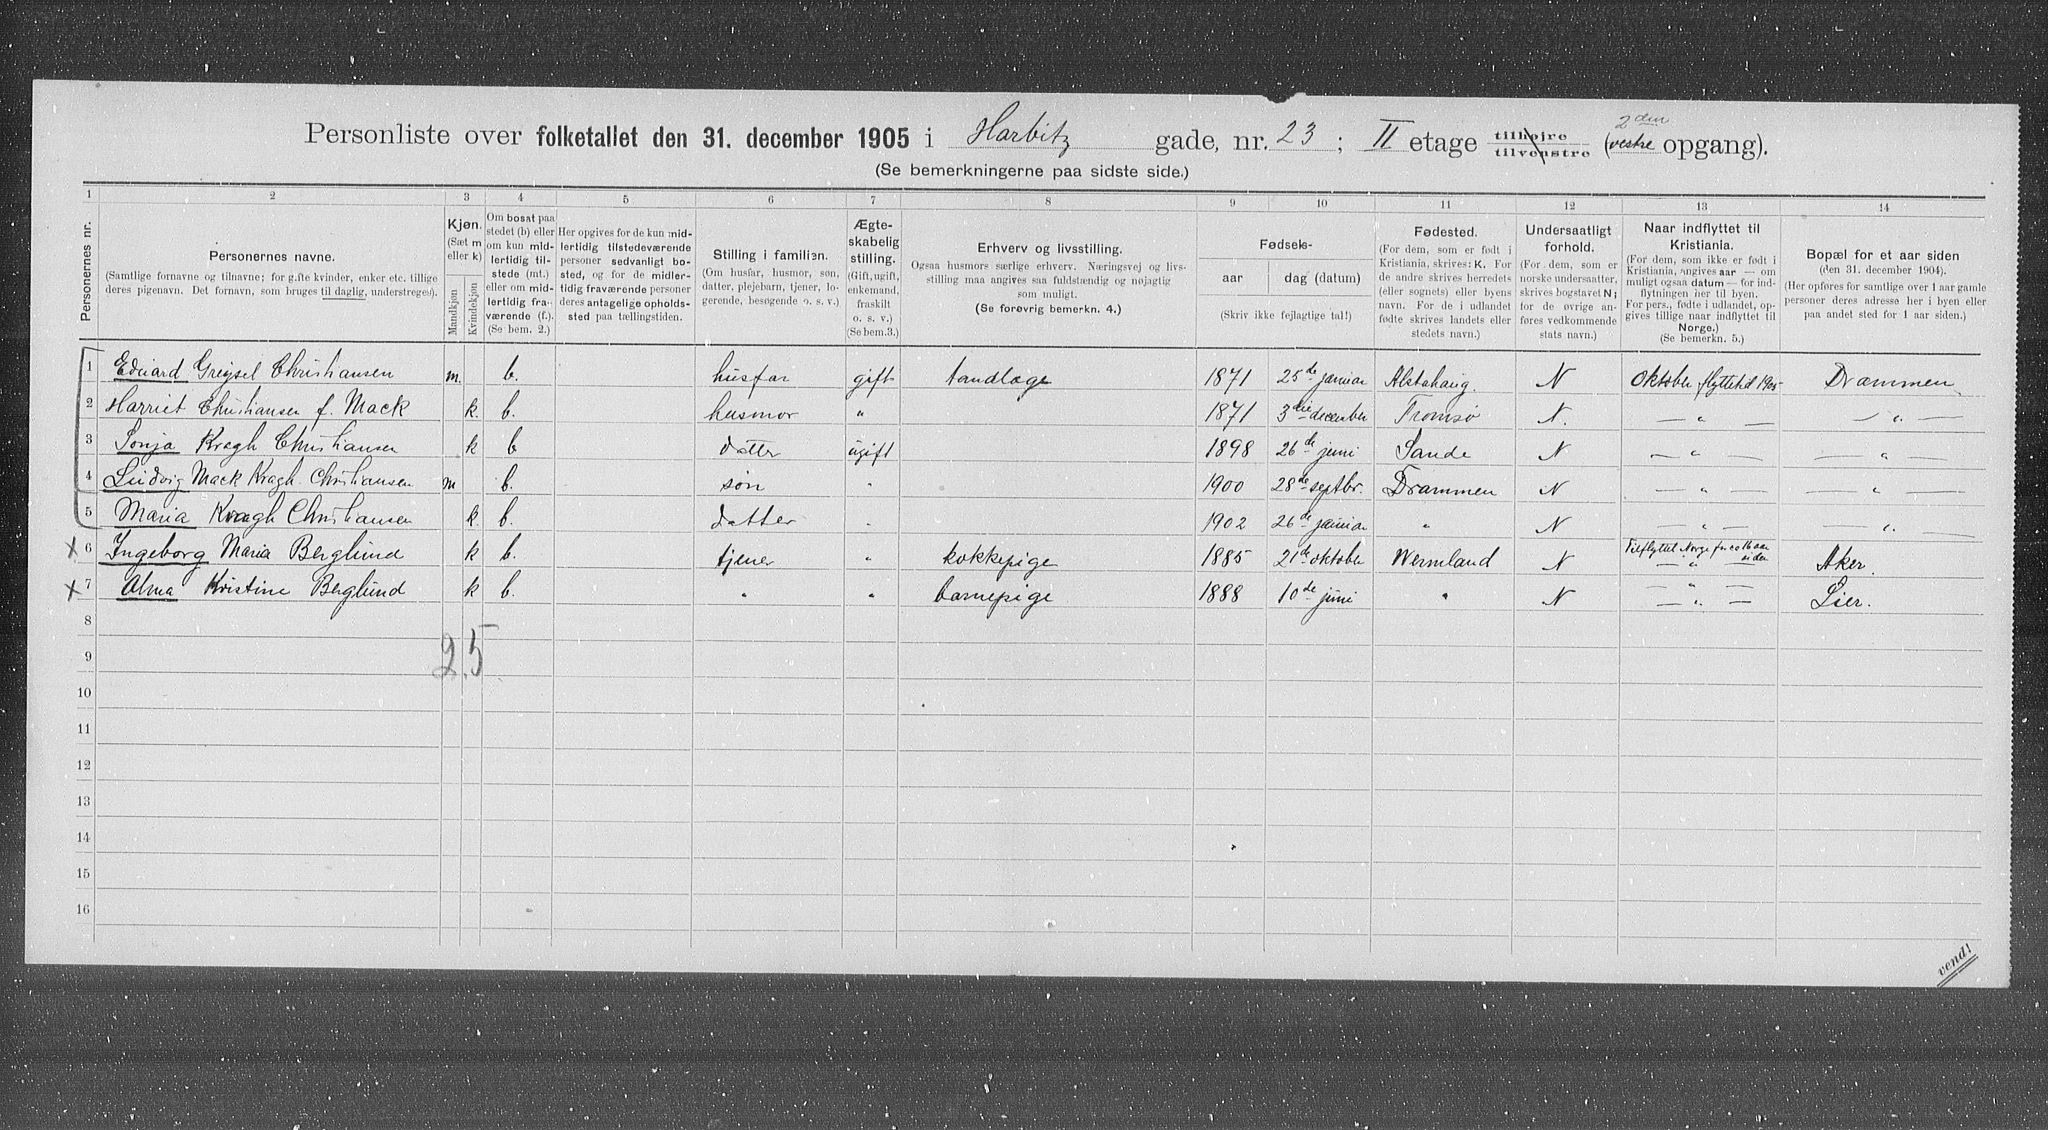 Personliste over folketallet den 31. december 1905 i Harbitz gade, nr. 23 ; II etage tilhøjre tilvenstre (2den vestre opgang).
(Se bemerkningerne paa sidste side.)
1 2 3 4 5 6 7 8 9 10 11 12 13 14
Personernes nr.
Personernes navne.
(Samtlige fornavne og tilnavne; for gifte kvinder, enker etc. tillige deres pigenavn. Det fornavn, som bruges til daglig, understreges).
Kjøn.
(Sæt m eller k)
Mandkjøn
Kvindekjøn
Om bosat paa stedet (b) eller om kun midlertidig tilstede (mt.) eller om midlertidig fraværende (f.). (Se bem. 2.)
Her opgives for de kun midlertidig tilstedeværende personer sedvanligt bosted, og for de midlertidig fraværende personer deres antagelige opholdssted paa tællingstiden.
Stilling i familien.
(Om husfar, husmor, søn, datter, plejebarn, tjener, logerende, besøgende o. s. v.)
Ægteskabelig stilling.
(Gift, ugift, enkemand, fraskilt o. s. v.)
(Se bem. 3.)
Erhverv og livsstilling.
Ogsaa husmors særlige erhverv. Næringsvej og livsstilling maa angives saa fuldstændig og nøjagtig som muligt.
(Se forøvrig bemerkn. 4.)
Fødsels-
aar
dag (datum)
(Skriv ikke fejlagtige tal!)
Fødested.
(For dem, som er født i Kristiania, skrives: K. For de andre skrives herredets (eller sognets) eller byens navn. For de i udlandet fødte skrives landets eller stedets navn.)
Undersaatligt forhold.
(For dem, som er norske undersaatter, skrives bogstavet N; for de øvrige anføres vedkommende stats navn.)
Naar indflyttet til Kristiania.
(For dem, som ikke er født i Kristiania, angives aar — om muligt ogsaa datum — for indflytningen her til byen. For pers., fødte i udlandet, opgives tillige naar indflyttet til Norge.)
(Se bemerkn. 5.)
Bopæl for et aar siden
(den 31. december 1904.)
(Her opføres for samtlige over 1 aar gamle personer deres adresse her i byen eller paa andet sted for 1 aar siden.)
1 Eduard Greysel Christiansen m. b. husfar gift tandlæge 1871 25de januar Alstahaug. N Oktober flyttetid 1905 Drammen
2 Harriet Christiansen f. Mack k. b. husmor " 1871 3die december Tromsø N. — " — — " —
3 Sonja Kragh Christiansen k b datter ugift 1898 26de juni Sande N — " — — " —
4 Ludvig Mack Kragh Christiansen m b. søn " 1900 28de septbr. Drammen N — " — — " —
5 Maria Kragh Christiansen k. b. datter " 1902 26de januar " N — " — — " —
x 6 Ingeborg Maria Berglund k b. tjener " kokkepige 1885 21de oktober Wermland N Tilflyttet Norge for aar siden — " — Aker.
x 7 Alma Kristine Berglund k b. " " barnepige 1888 10de juni " N — " — Lier.
8
25
9
10
11
12
13
14
15
16
vend!